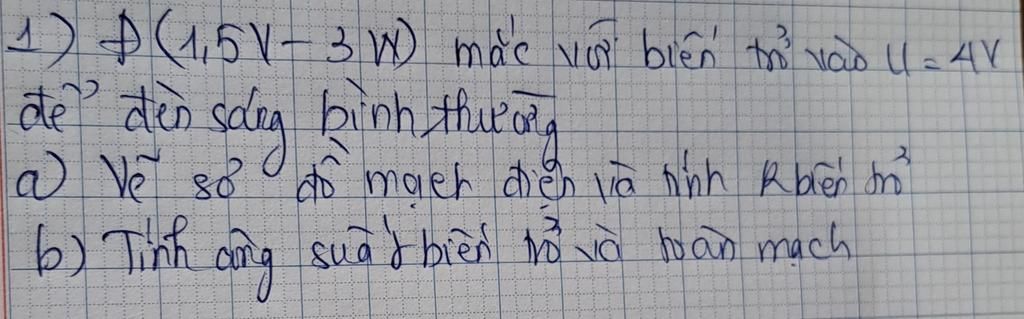 1) Đ (1,5V - 3W) mắc với biến trở vào U = 4V
để đèn sáng bình thường
a) Vẽ sơ đồ mạch điện và tính R biến trở
b) Tính công suất biến trở và toàn mạch